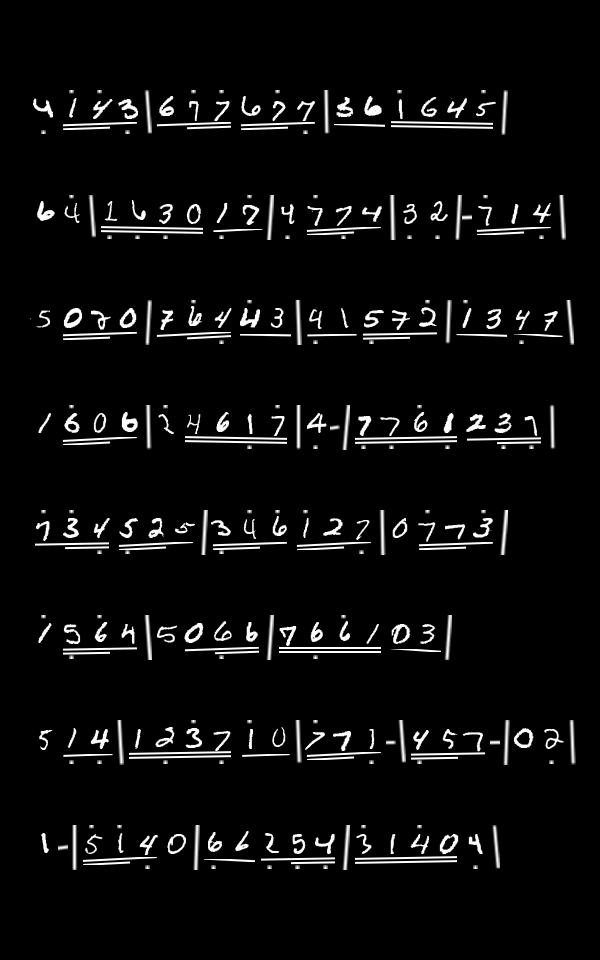 4143|677677|361645
64|163017|4774|32-|-714|
5020|76443|41572|1347|
1606|24617|4-|7761237|
734525|346127|0773|
1564|5066|766103|
514|123710|771-|457-|02|
1-|5140|66254|31404|